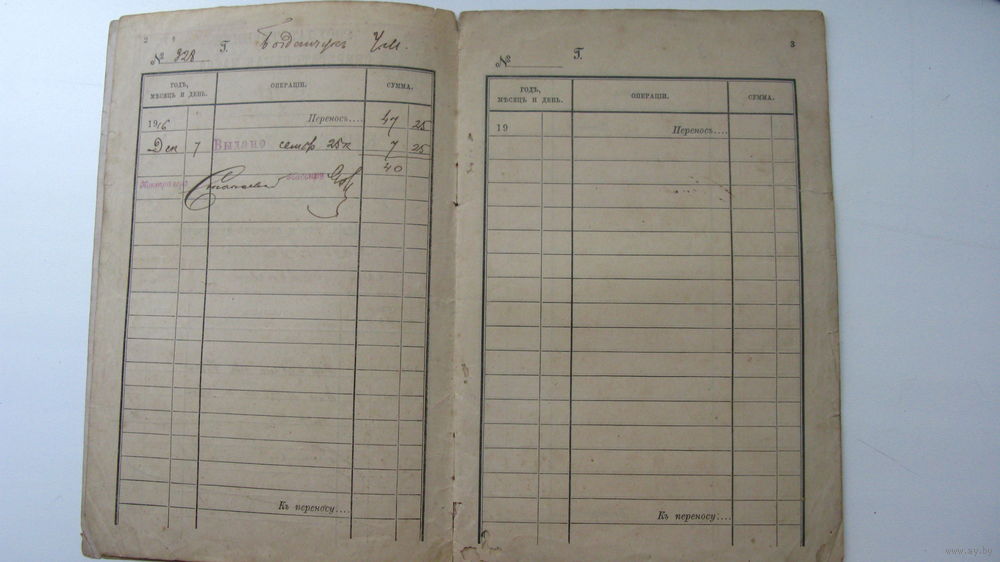 2
№ 928 Г. Богданчукъ
ГОДЪ, МѢСЯЦЪ И ДЕНЬ.
ОПЕРАЦІИ.
СУММА.
1916 Переносъ.... 47 25
Дек 7 Выдано семь р. 25 к 7 25
40
Контролеръ Кассиръ
Къ переносу....
3
№ Г.
ГОДЪ, МѢСЯЦЪ И ДЕНЬ.
ОПЕРАЦІИ.
СУММА.
19 Переносъ....
Къ переносу....
www.ay.by